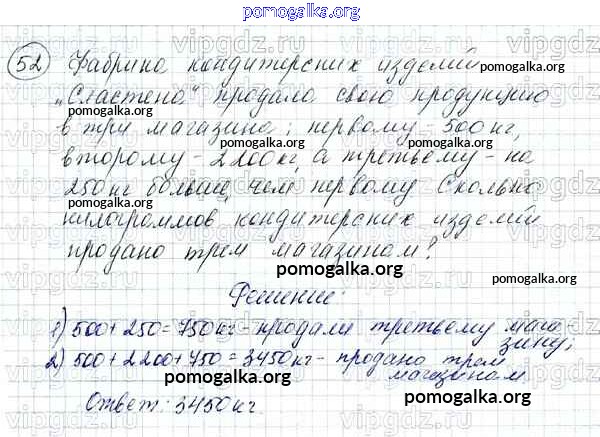 pomogalka.org
52 Фабрика кондитерских изделий
pomogalka.org
„Сластена“ продала свою продукцию
в три магазина: первому - 500 кг,
второму - 2200 кг, а третьему - на
pomogalka.org
250 кг больше, чем первому. Сколько
килограммов кондитерских изделий
pomogalka.org
продано трем магазинам?
pomogalka.org
Решение:
1) 500 + 250 = 750 кг - продали третьему мага-
зину;
pomogalka.org
2) 500 + 2200 + 750 = 3450 кг - продано трем
магазинам
pomogalka.org
Ответ: 3450 кг.
pomogalka.org